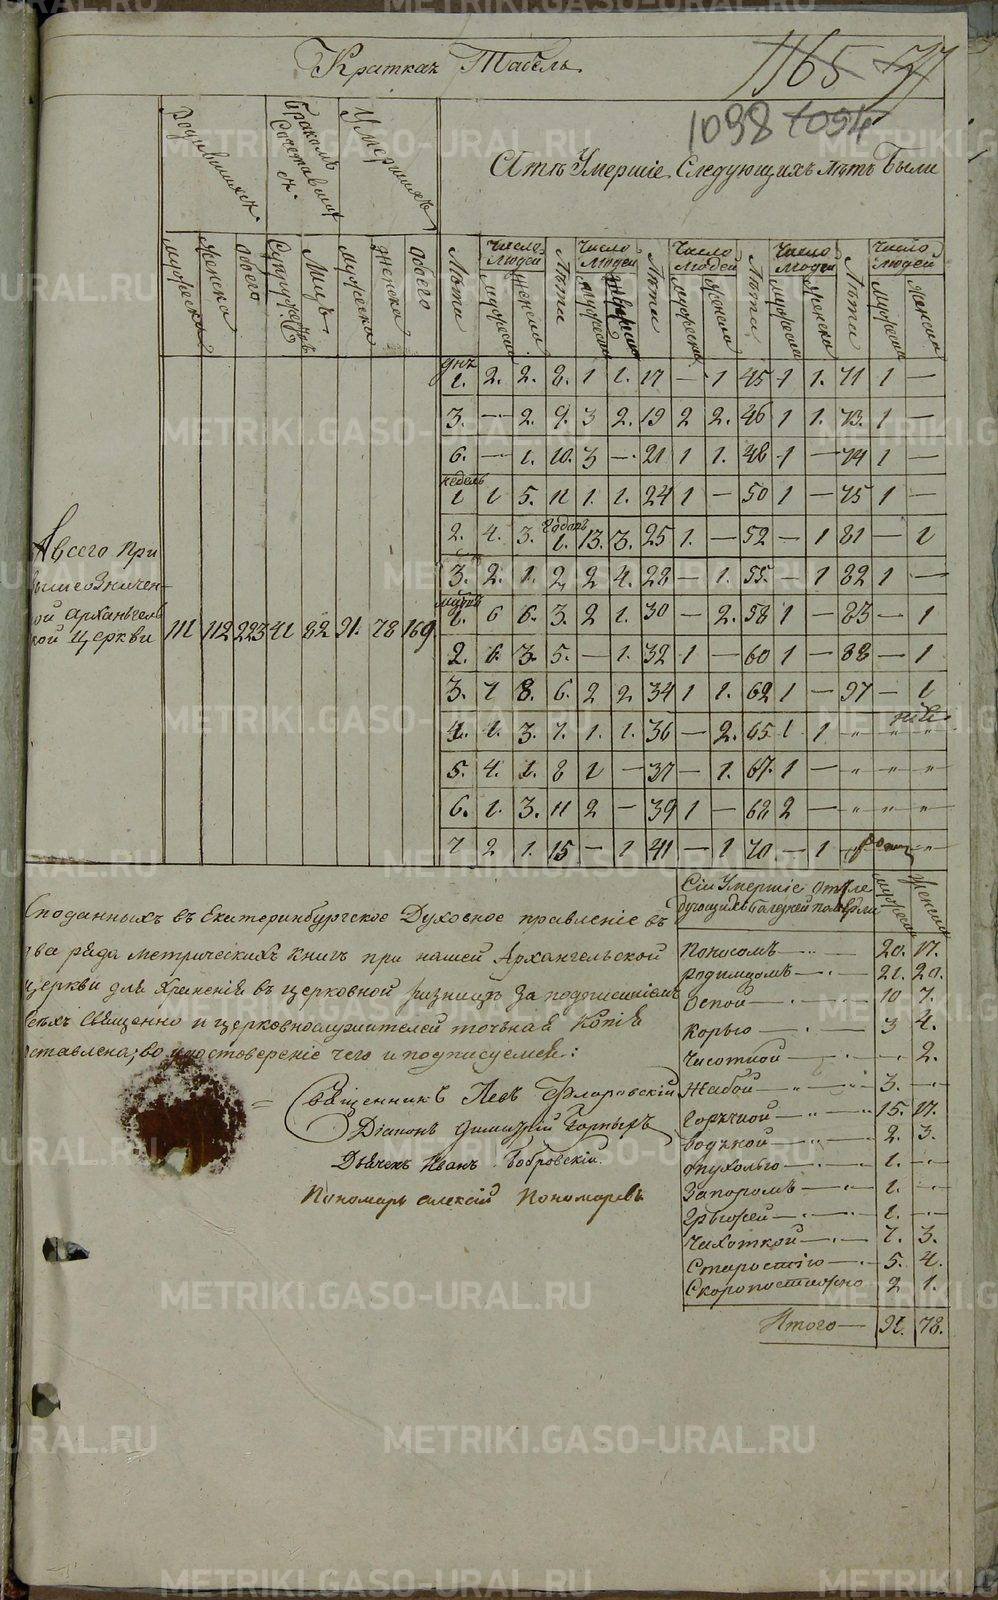 Краткая Табель
1165 77
1098 1094
Родившихся.
Бракомъ Сочетавшихся.
Умершихъ
А тѣ Умершіе Следующихъ лѣтъ Были
мужеска
Женска
Обоего
Супружествъ
Лицъ
мужеска
женска
Обоего
Лѣта
Число Людей
мужеска
женска
Лѣта
Число Людей
мужеска
женска
Лѣта
Число Людей
мужеска
женска
Лѣта
Число Людей
мужеска
женска
Лѣта
Число Людей
мужеска
женска
дня
1. 2. 2. 8. 1 1. 17 — 1 45 1 1. 71 1 —
3. — 2. 9. 3 2. 19 2 2. 46 1 1. 73. 1 —
6. — 1. 10. 3 — 21 1 1. 48 1 — 74 1 —
недель
1 1 5. 11 1. 1. 24 1 — 50 1 — 75 1 —
2. 4. 3. годовъ 1. 13. 3. 25 1. — 52 — 1 81 — 1
3. 2. 1. 2 2 4. 28 — 1. 55. — 1 82 1 —
1. 6 6. 3. 2 1. 30 — 2. 58 1 — 83 — 1
2. 1. 3. 5. — 1. 32 1 — 60 1 — 88 — 1
3. 7 8. 6. 2 2 34 1 1. 62 1 — 97 — 1
4. 1. 3. 7. 1. 1. 36 — 2. 65 1 1 " " "
5. 4. 1. 8 1 — 37 — 1. 67. 1 — " " "
6. 1. 3. 11 2 — 39 1 — 68 2 — " " "
7 2 1. 15 — 1 41 — 1 70. — 1
А всего При
вышеозначен-
ой Архангель
кой Церкви 111 112 223 41 82 91. 78 169
Сіи Умершіе от сле
дующихъ болезней померли
мужеска
женска
Споданныхъ въ Екатеринбургское Духовное правленіе въ
два ряда метрическихъ книгъ при нашей Архангельской
церкви для храненія въ церковной ризницѣ за подписаніемъ
всѣхъ Священно и церковнослужителей точная Копія
оставлена; во удостовереніе чего и подписуемся:
Священникъ Левъ Флоровскій
Діаконъ Димитрій
Дьячекъ Иванъ Бобровскій.
Пономарь Алексій Пономаревъ
Поносомъ — 20. 17.
Родимцомъ — 21. 20.
Оспой — 10 7.
Корью — 3 4.
Чесоткой — — 2.
Жабой — 3. —
Горячкой — 15. 17.
Водянкой — 2. 3.
Опухолью — 1. —
Запоромъ — 1. —
Грыжей — 1. —
Чахоткой — 7. 3.
Старостію — 5. 4.
Скоропостижно 2 1.
Итого — 91. 78.
METRIKI.GASO-URAL.RU